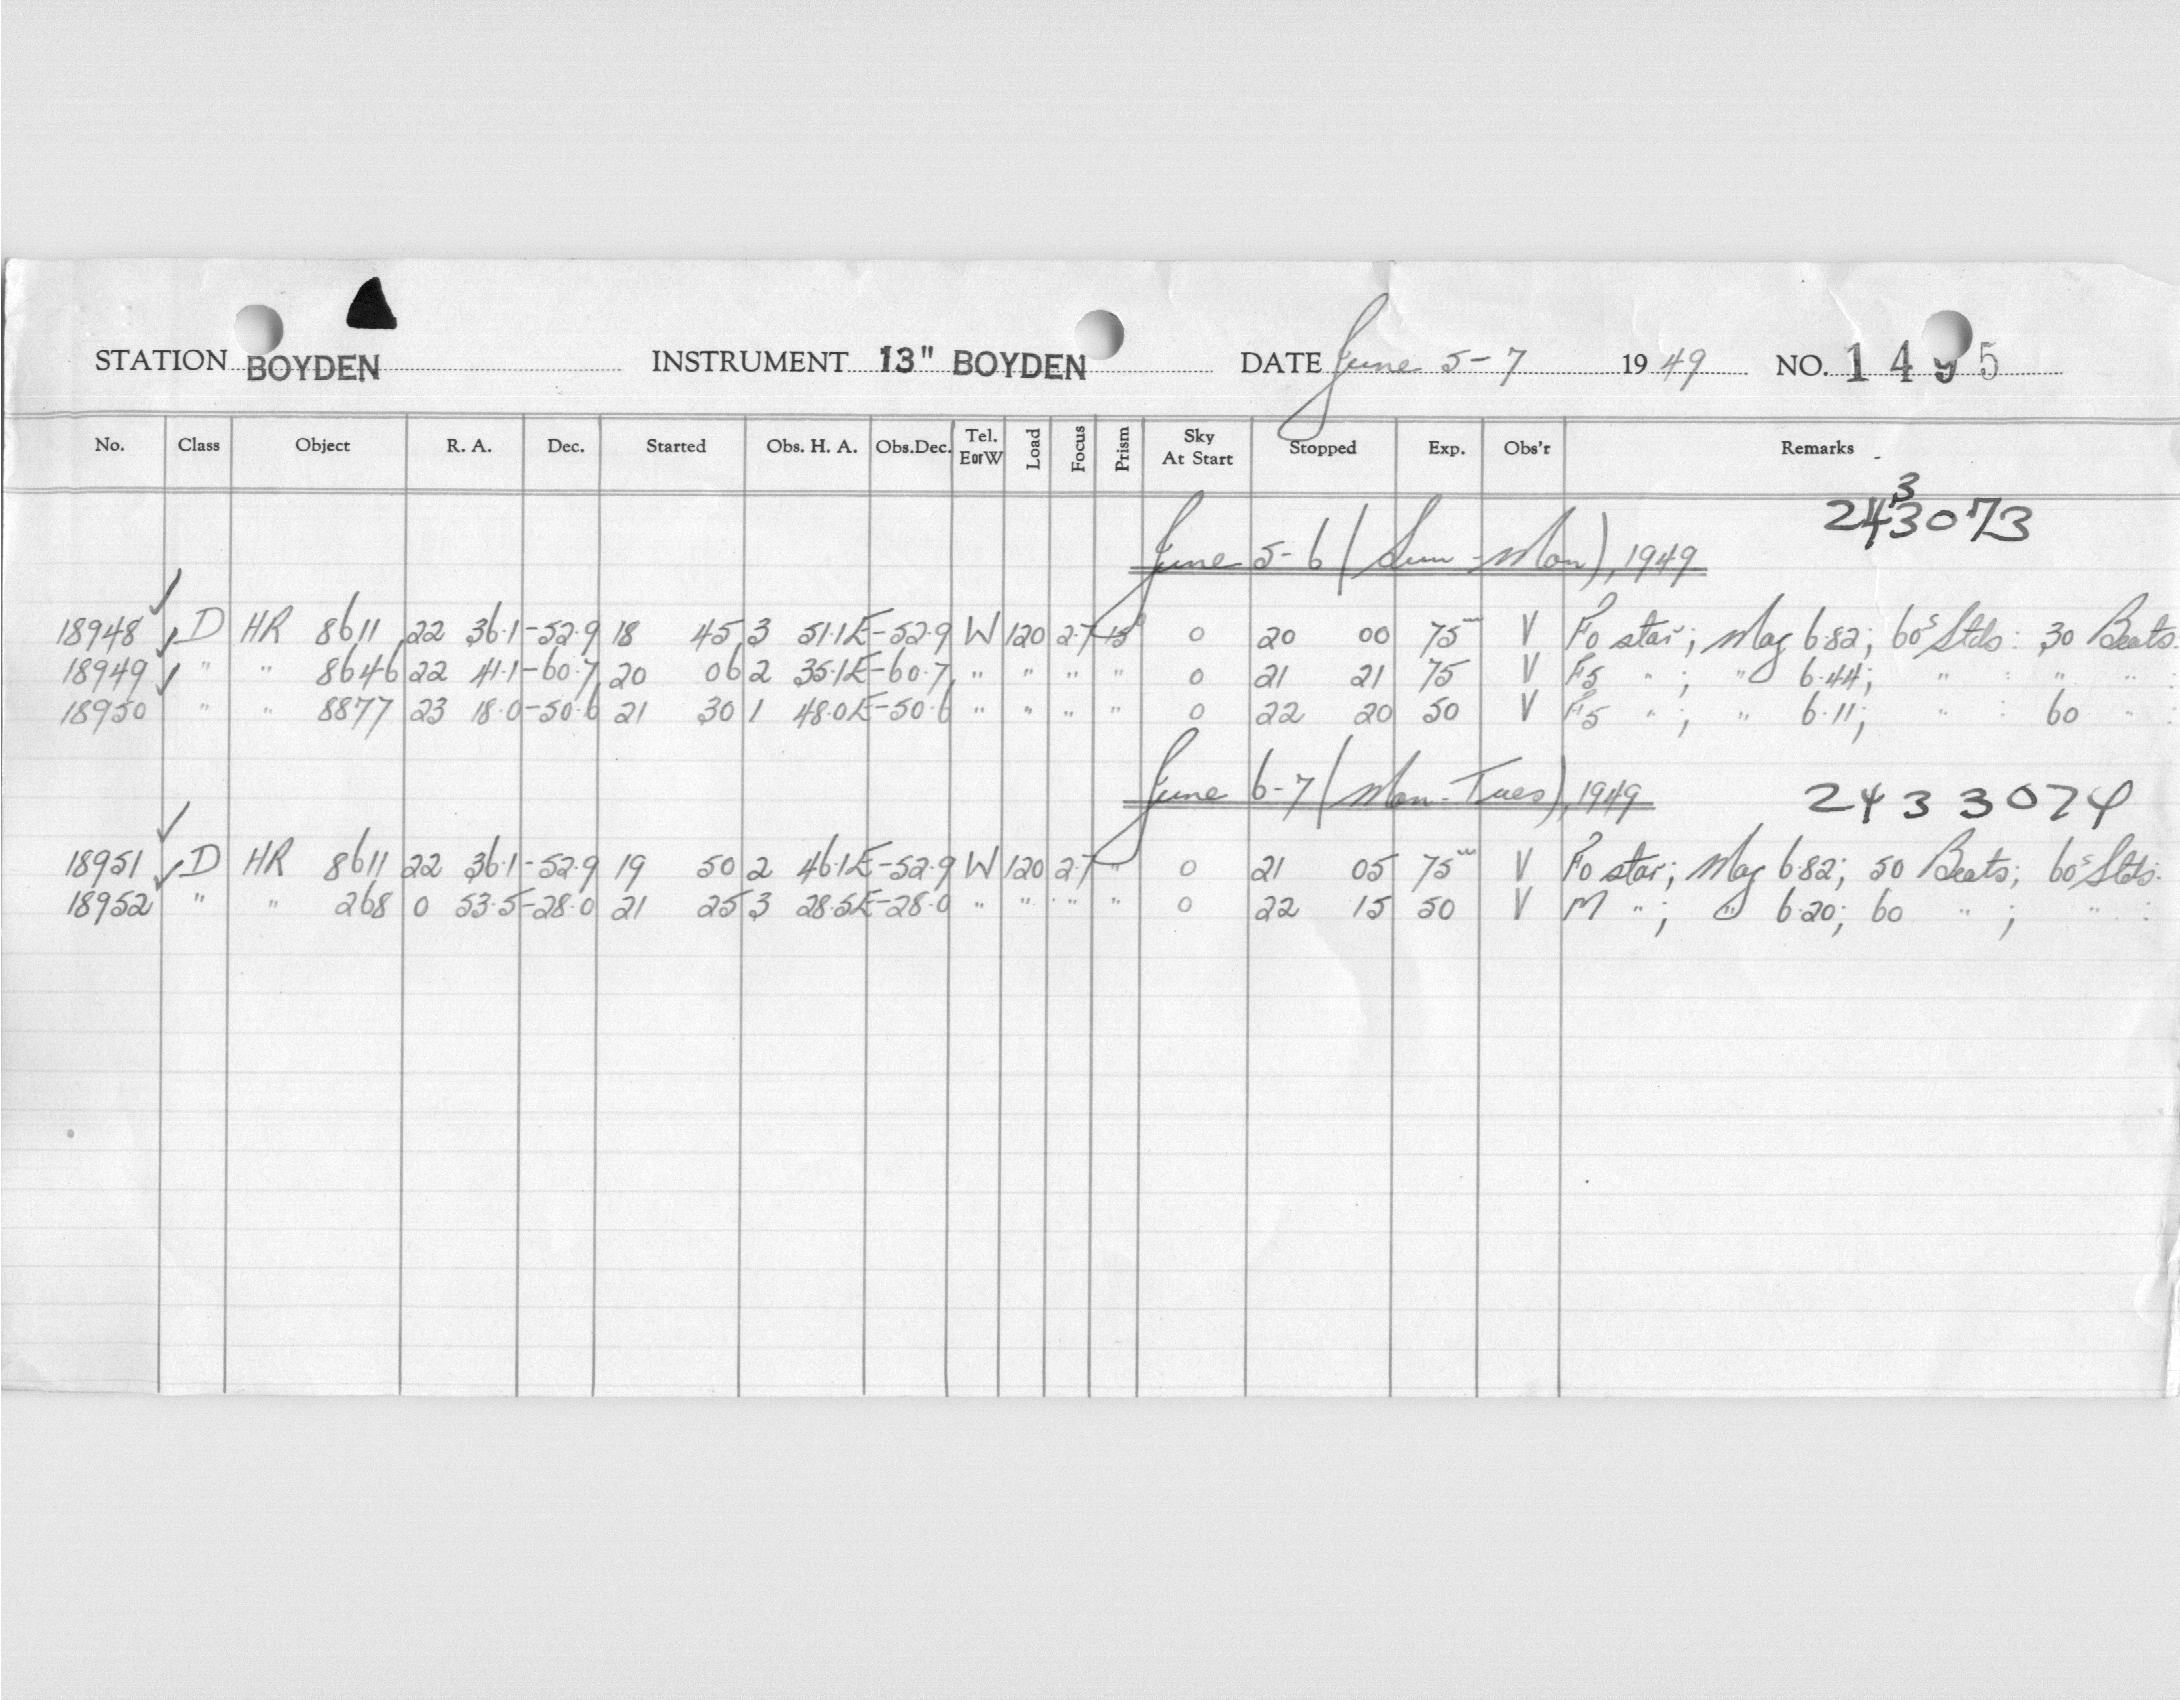 STATION BOYDEN INSTRUMENT 13" BOYDEN DATE June 5-7 1949 NO. 1495
No. Class Object R. A. Dec. Started Obs. H. A. Obs.Dec. Tel. E or W Load Focus Prism Sky At Start Stopped Exp. Obs'r Remarks
3
243073
June 5-6 (Sun-Mon), 1949
18948 ✓ D HR 8611 22 36.1 -52.9 18 45 3 51.1E -52.9 W 120 2.7 15° 0 20 00 75m V F0 star; Mag 6.82; 60s Stds: 30 Beats.
18949 ✓ " " 8646 22 41.1 -60.7 20 06 2 35.1E -60.7 " " " " 0 21 21 75 V F5 " ; " 6.44; " : " " :
18950 ✓ " " 8877 23 18.0 -50.6 21 30 1 48.0E -50.6 " " " " 0 22 20 50 V F5 " ; " 6.11; " : 60 " :
June 6-7 (Mon-Tues), 1949 2433074
18951 ✓ D HR 8611 22 36.1 -52.9 19 50 2 46.1E -52.9 W 120 2.7 " 0 21 05 75m V F0 star; Mag 6.82; 50 Beats; 60s Stds.
18952 ✓ " " 268 0 53.5 -28.0 21 25 3 28.5E -28.0 " " " " 0 22 15 50 V M " ; " 6.20; 60 " ; " :